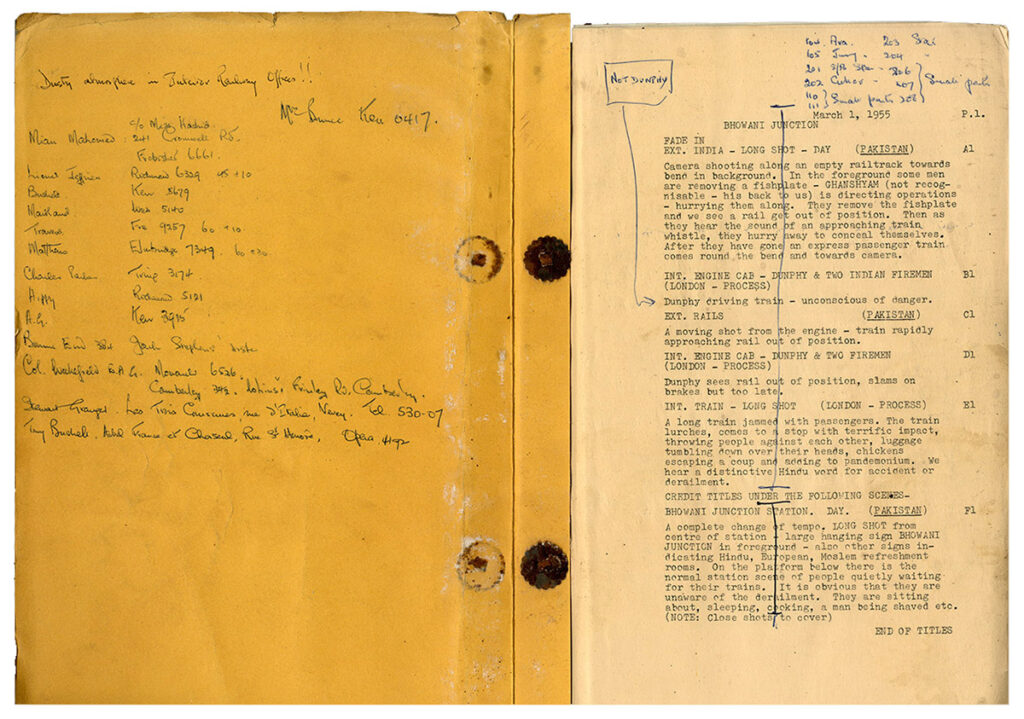 Dusty atmosphere in Interior Railway Offices!!
Ken 0417.
c/o Miss
Mian Mahomed: 241 Cromwell Rd.
Frobisher 6661.
Lionel Jeffries Redmond 6329 45 + 10
Bushell Kew 5679
Maitland 5140
Travers Fre 9257 60 + 10
Matthews 7349. 60
Charles 3174
Redmond 5121
A.G. Kew 3975
Bourne End 384 Jack Stephens'
Col. Wakefield 6526.
Camberley Frimley Rd. Camberley.
Stewart Granger. Les Trois rue d'Italie, Vevey. Tel. 530-07
Tony Bushell. Hotel France et Choiseul, Rue St Honoré, Opera
104 Ava. 203
105 204
201
202 Cukor - 207 Small parts
110
111 Small parts 208
NOT DUNPHY
March 1, 1955 P.1.
BHOWANI JUNCTION
FADE IN
EXT. INDIA - LONG SHOT - DAY (PAKISTAN) A1
Camera shooting along an empty railtrack towards
bend in background. In the foreground some men
are removing a fishplate - GHANSHYAM (not recog-
nisable - his back to us) is directing operations
- hurrying them along. They remove the fishplate
and we see a rail get out of position. Then as
they hear the sound of an approaching train
whistle, they hurry away to conceal themselves.
After they have gone an express passenger train
comes round the bend and towards camera.
INT. ENGINE CAB - DUNPHY & TWO INDIAN FIREMEN B1
(LONDON - PROCESS)
Dunphy driving train - unconscious of danger.
EXT. RAILS (PAKISTAN) C1
A moving shot from the engine - train rapidly
approaching rail out of position.
INT. ENGINE CAB - DUNPHY & TWO FIREMEN D1
(LONDON - PROCESS)
Dunphy sees rail out of position, slams on
brakes but too late.
INT. TRAIN - LONG SHOT (LONDON - PROCESS) E1
A long train jammed with passengers. The train
lurches, comes to a stop with terrific impact,
throwing people against each other, luggage
tumbling down over their heads, chickens
escaping a coup and adding to pandemonium. We
hear a distinctive Hindu word for accident or
derailment.
CREDIT TITLES UNDER THE FOLLOWING SCENES-
BHOWANI JUNCTION STATION. DAY. (PAKISTAN) F1
A complete change of tempo. LONG SHOT from
centre of station - large hanging sign BHOWANI
JUNCTION in foreground - also other signs in-
dicating Hindu, European, Moslem refreshment
rooms. On the platform below there is the
normal station scene of people quietly waiting
for their trains. It is obvious that they are
unaware of the derailment. They are sitting
about, sleeping, cooking, a man being shaved etc.
(NOTE: Close shots to cover)
END OF TITLES